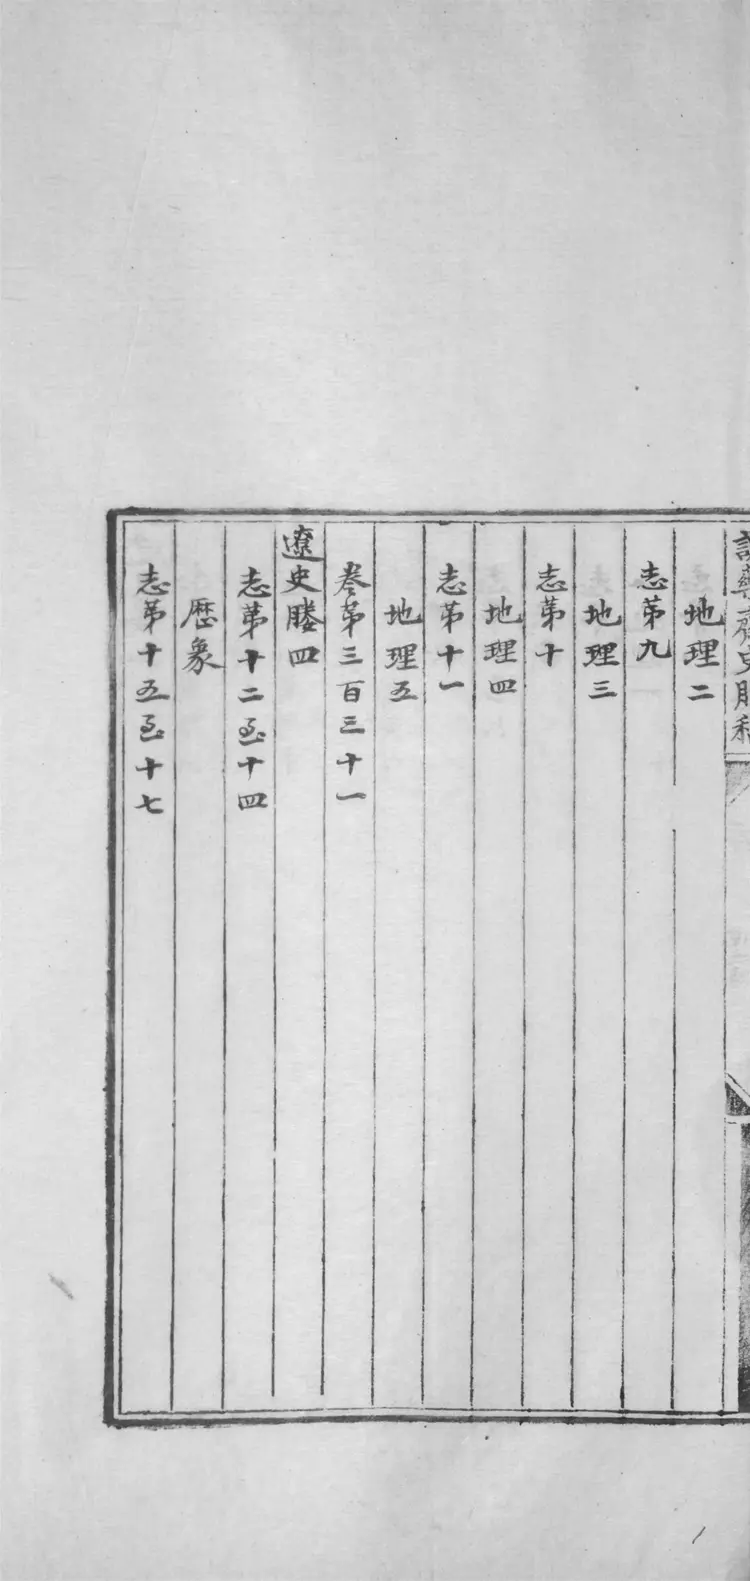 地理二
志第九
地理三
志第十
地理四
志第十一
地理五
卷第三百三十一
遼史賸四
志第十二至十四
歷象
志第十五至十七